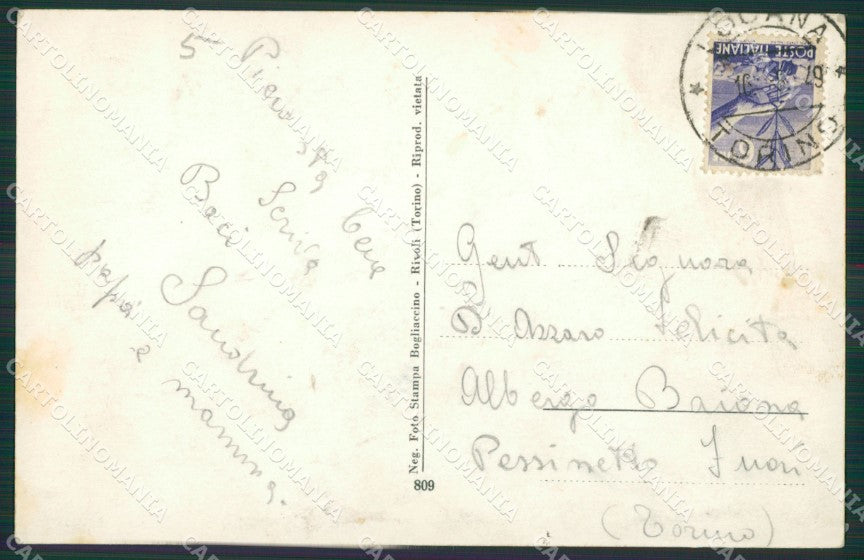 5
Piera sta bene
Scriva
Baci
Sandrina
papà e mamma.
Neg. Foto Stampa Bogliaccino - Rivoli (Torino) - Riprod. vietata
809
POSTE ITALIANE
LOCANA
TORINO
Gent Signora
D'Azzaro Felicita
Albergo Baiona
Pessinetto Fuori
(Torino)
CARTOLINOMANIA